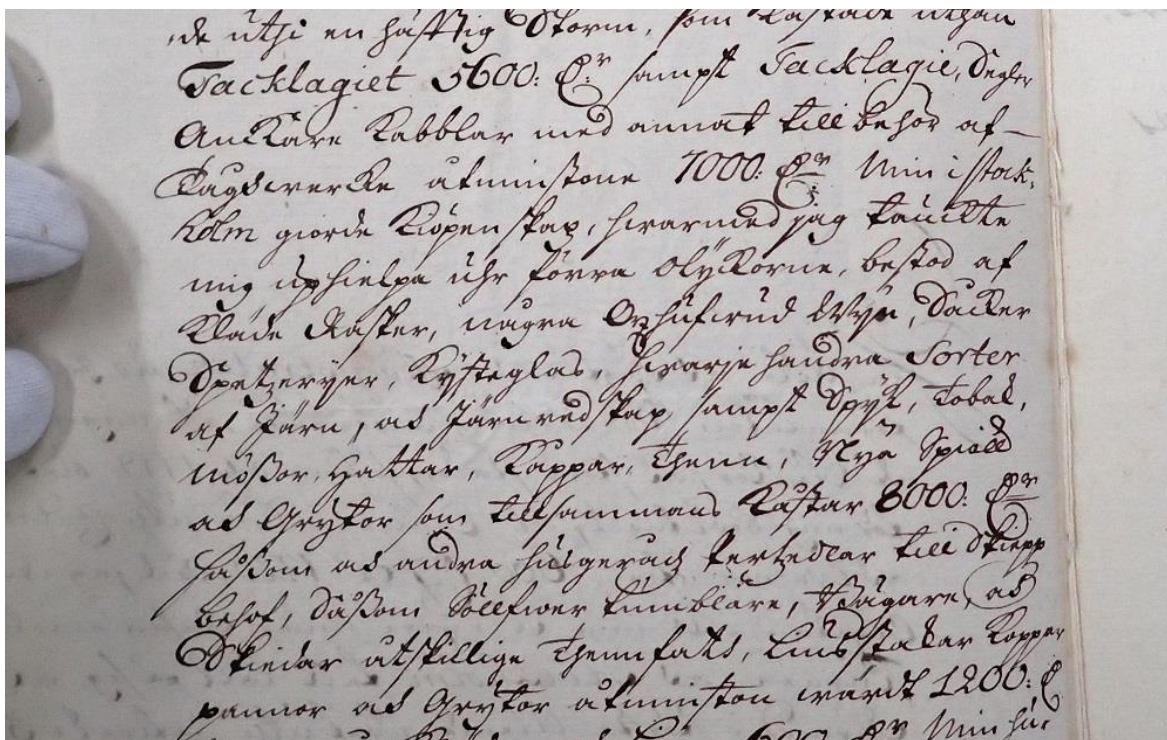 de uthi en häfftig Storm, som kastade uthan
Tacklagiet 5600: D:r sampt Tacklagie, Segler
Anckare Kabblar med annat till behör af
Tagdwercke åtminstone 7000: D:r Min i Stock-
holm giorde Kiöpenskap, hwarmed jag tänckte
mig uphielpa uhr förra olyckorne, bestod af
Kläde Rasker, några Oxhufwud Wijn, Säcker
Spetzeryer, Kysteglas, hwarjehandra Sorter
af Järn, och Järnredskap, sampt Spijk, Tobak,
mössor, Hattar, Kappar, Thenn, Nya Spiäll
och Grytor som tillsammans Kåstar 8000: D:r
såssom och andra husgeråds Pertzedlar till Skiepp
behof, Såssom Söllfwer tumblare, Bägare, och
Skiedar åtskillige Thennfatt, Liusstakar Kopper
pannor och Grytor åtminston wärdt 1200: D
600 D:r Min hus